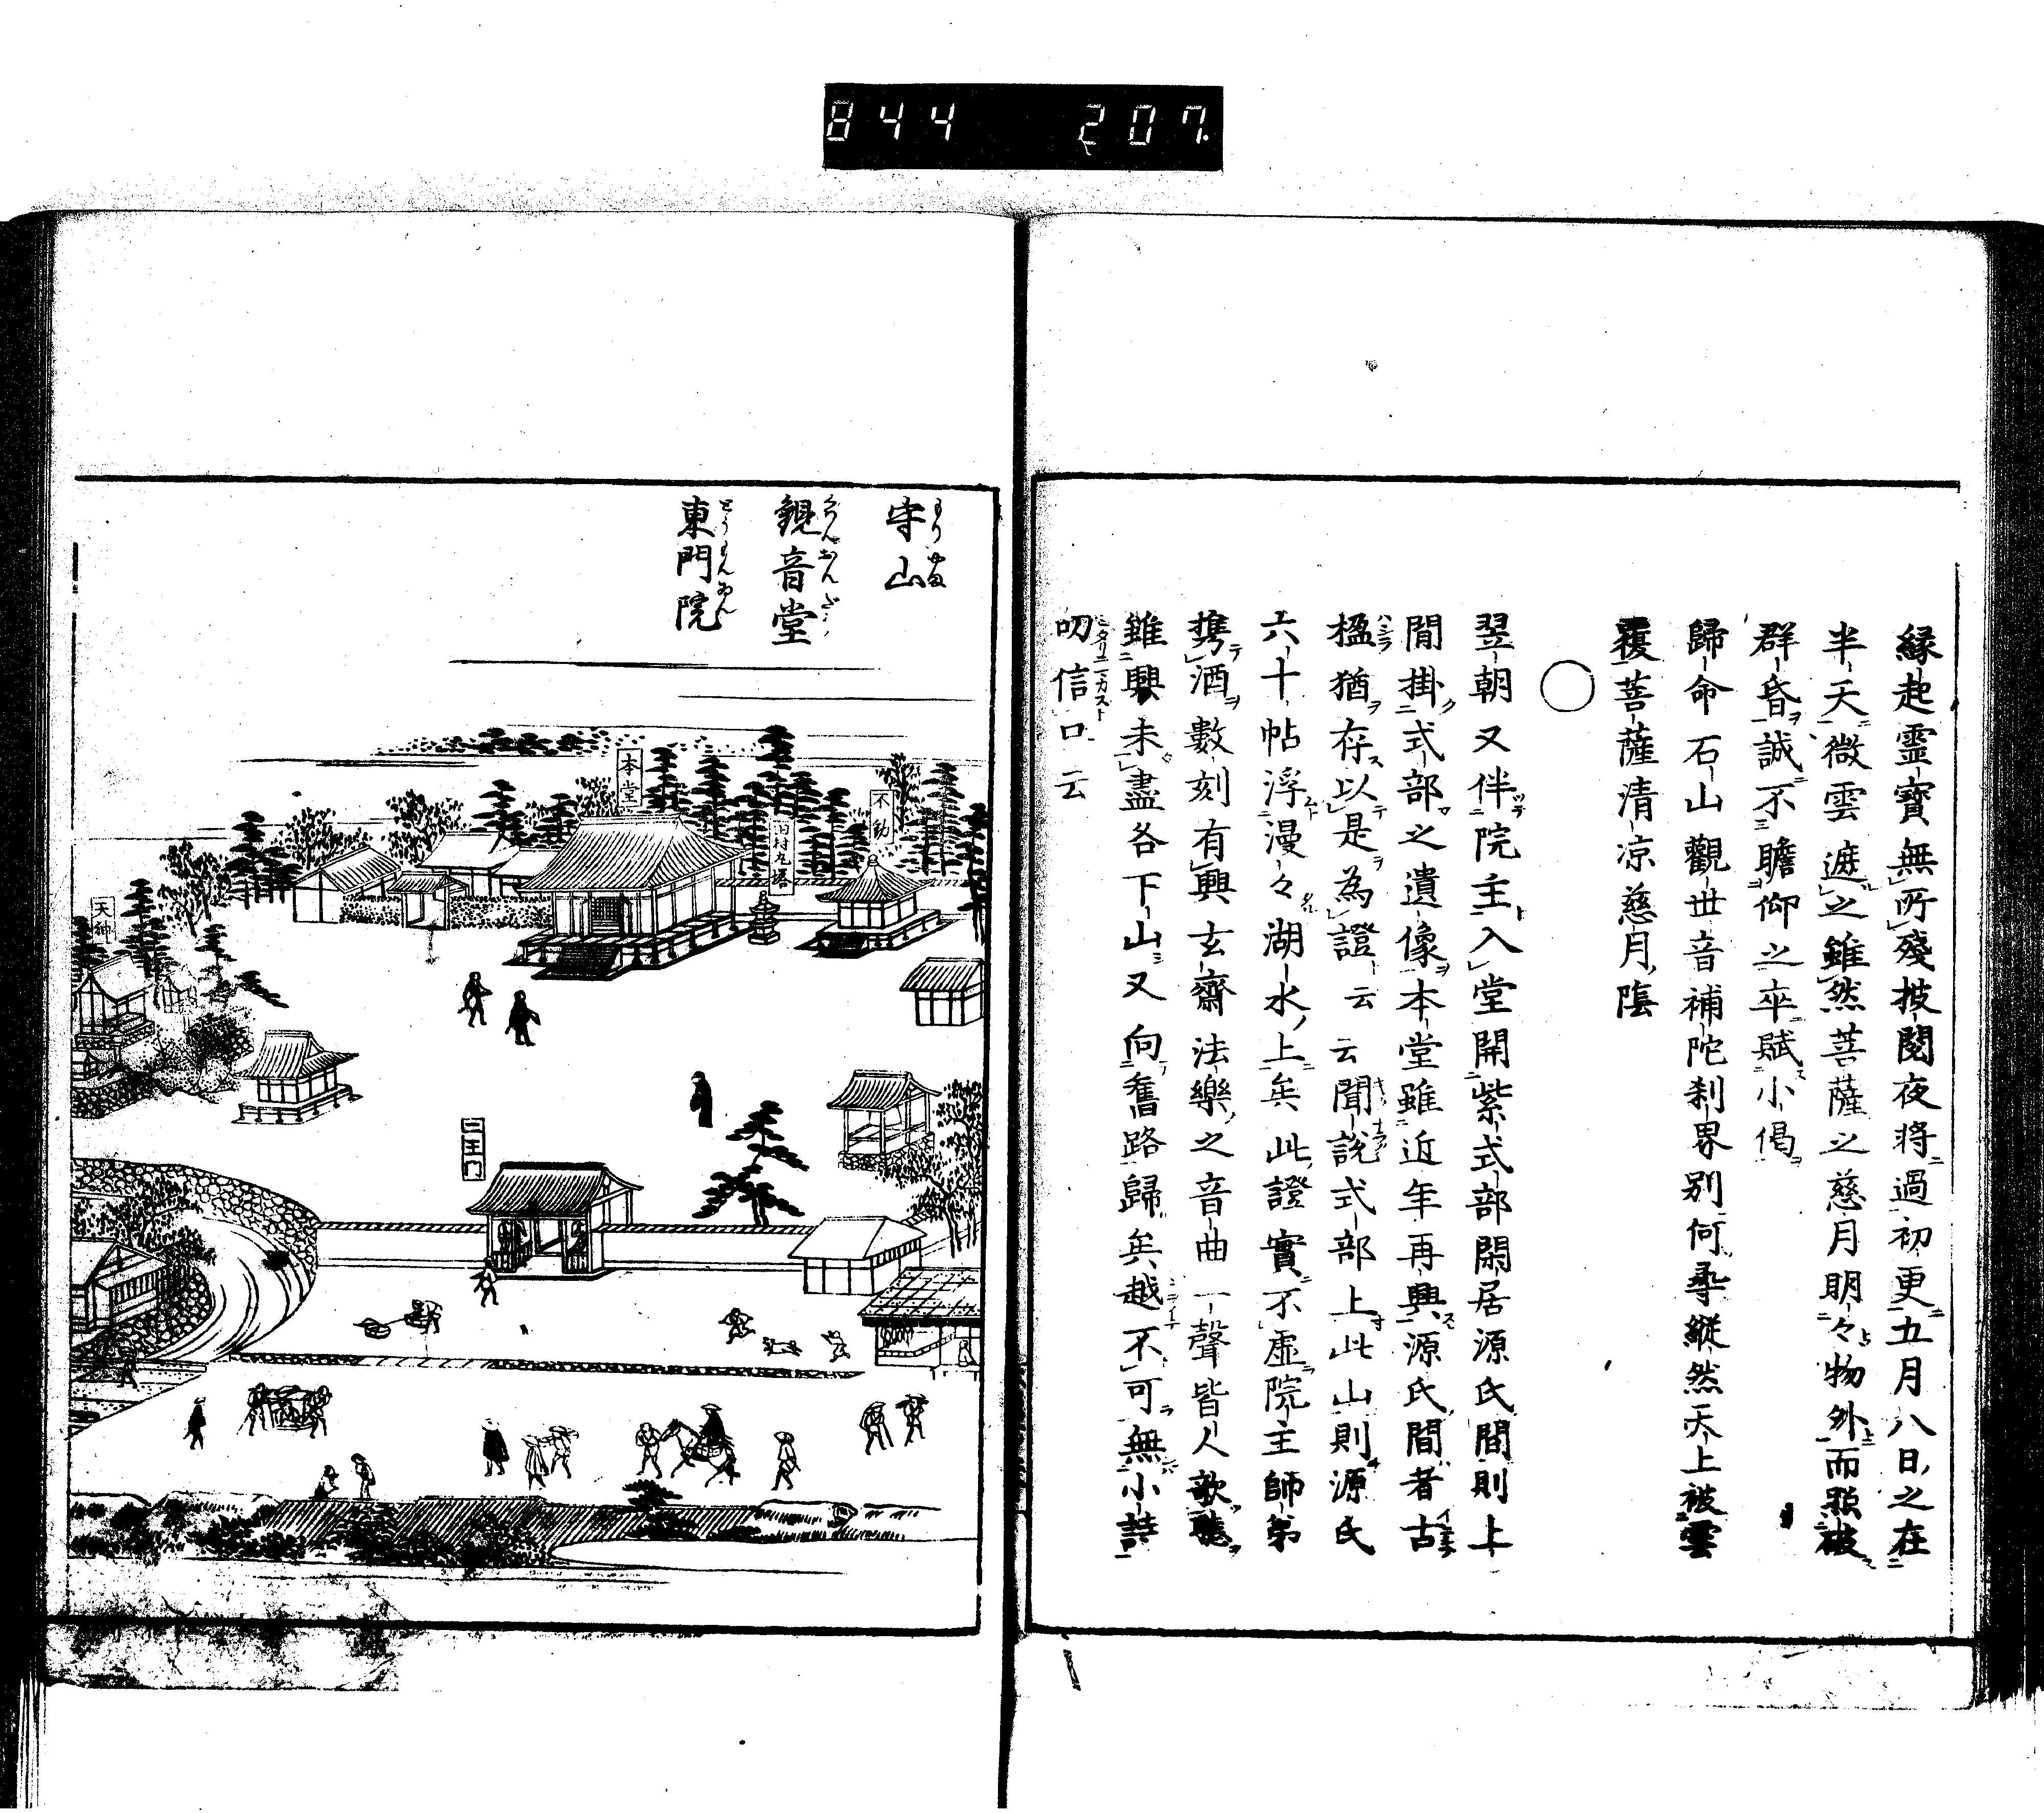 844 207
縁起靈寶無所殘披閲夜將過初更五月八日之在
半天微雲遮之雖然菩薩之慈月明々物外而照破
群昏誠不瞻仰之卒賦小偈
歸命石山觀世音補陀刹界別何尋縱然天上被雲
覆菩薩清凉慈月隂
〇
翌朝又伴院主入堂開紫式部閑居源氏間則上
間掛式部之遺像本堂雖近年再興源氏間者古
楹猶存以是為證云云聞說式部上此山則源氏
六十帖浮漫々湖水上矣此證實不虛院主師弟
携酒數刻有興玄齋法樂之音曲一聲皆人歌聽
雖興未盡各下山又向舊路歸矣越不可無小詩
叨信口云
守山
もりやま
観音堂
くわんおんだう
東門院
とうもんゐん
本堂
不動
田村丸塔
天神
二王門